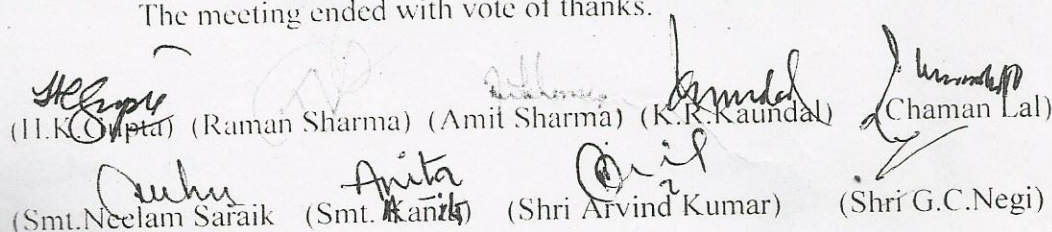 The meeting ended with vote of thanks.
(H.K.Gupta) (Raman Sharma) (Amit Sharma) (K.R.Kaundal) (Chaman Lal)
Anita
(Smt.Neelam Saraik (Smt. (Shri Arvind Kumar) (Shri G.C.Negi)